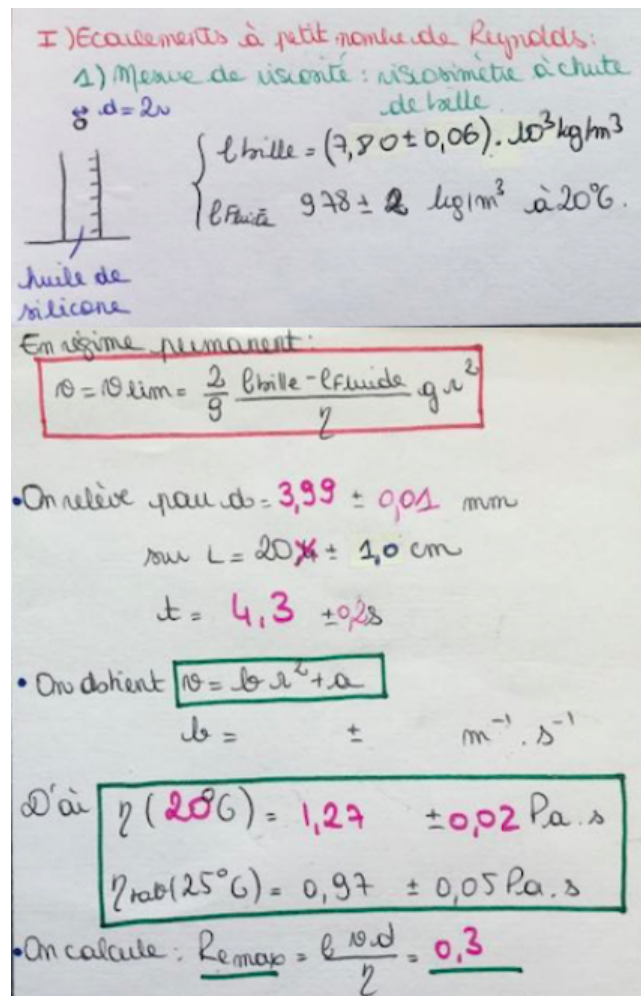 I) Ecoulements à petit nombre de Reynolds:
1) Mesure de viscosité : viscosimètre à chute
de bille
d=2r
ρbille = (7,80 ± 0,06). 10³ kg/m³
ρFluide 978 ± 2 kg/m³ à 20°C.
huile de
silicone
En régime permanent:
v = vlim = 2/9 (ρbille - ρFluide)/η g r²
• On relève pour d = 3,99 ± 0,01 mm
sur L = 20 ± 1,0 cm
t = 4,3 ±0,2s
• On obtient v = b r² + a
b = ± m⁻¹. s⁻¹
D'où η (20°C) = 1,27 ±0,02 Pa.s
ηtab(25°C) = 0,97 ± 0,05 Pa.s
• On calcule : Remax = ρ v.d/η = 0,3